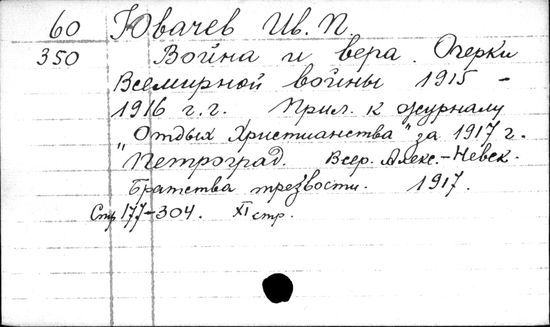 60 Ювачев Ив. П.
350 Война и вера. Очерки
Всемирной войны 1915 -
1916 г.г. Прил. к журналу
"Отдых Христианства" за 1917 г.
Петроград. Всер. Алекс.-Невск.
Братства трезвости. 1917.
Стр 177-304. XI стр.